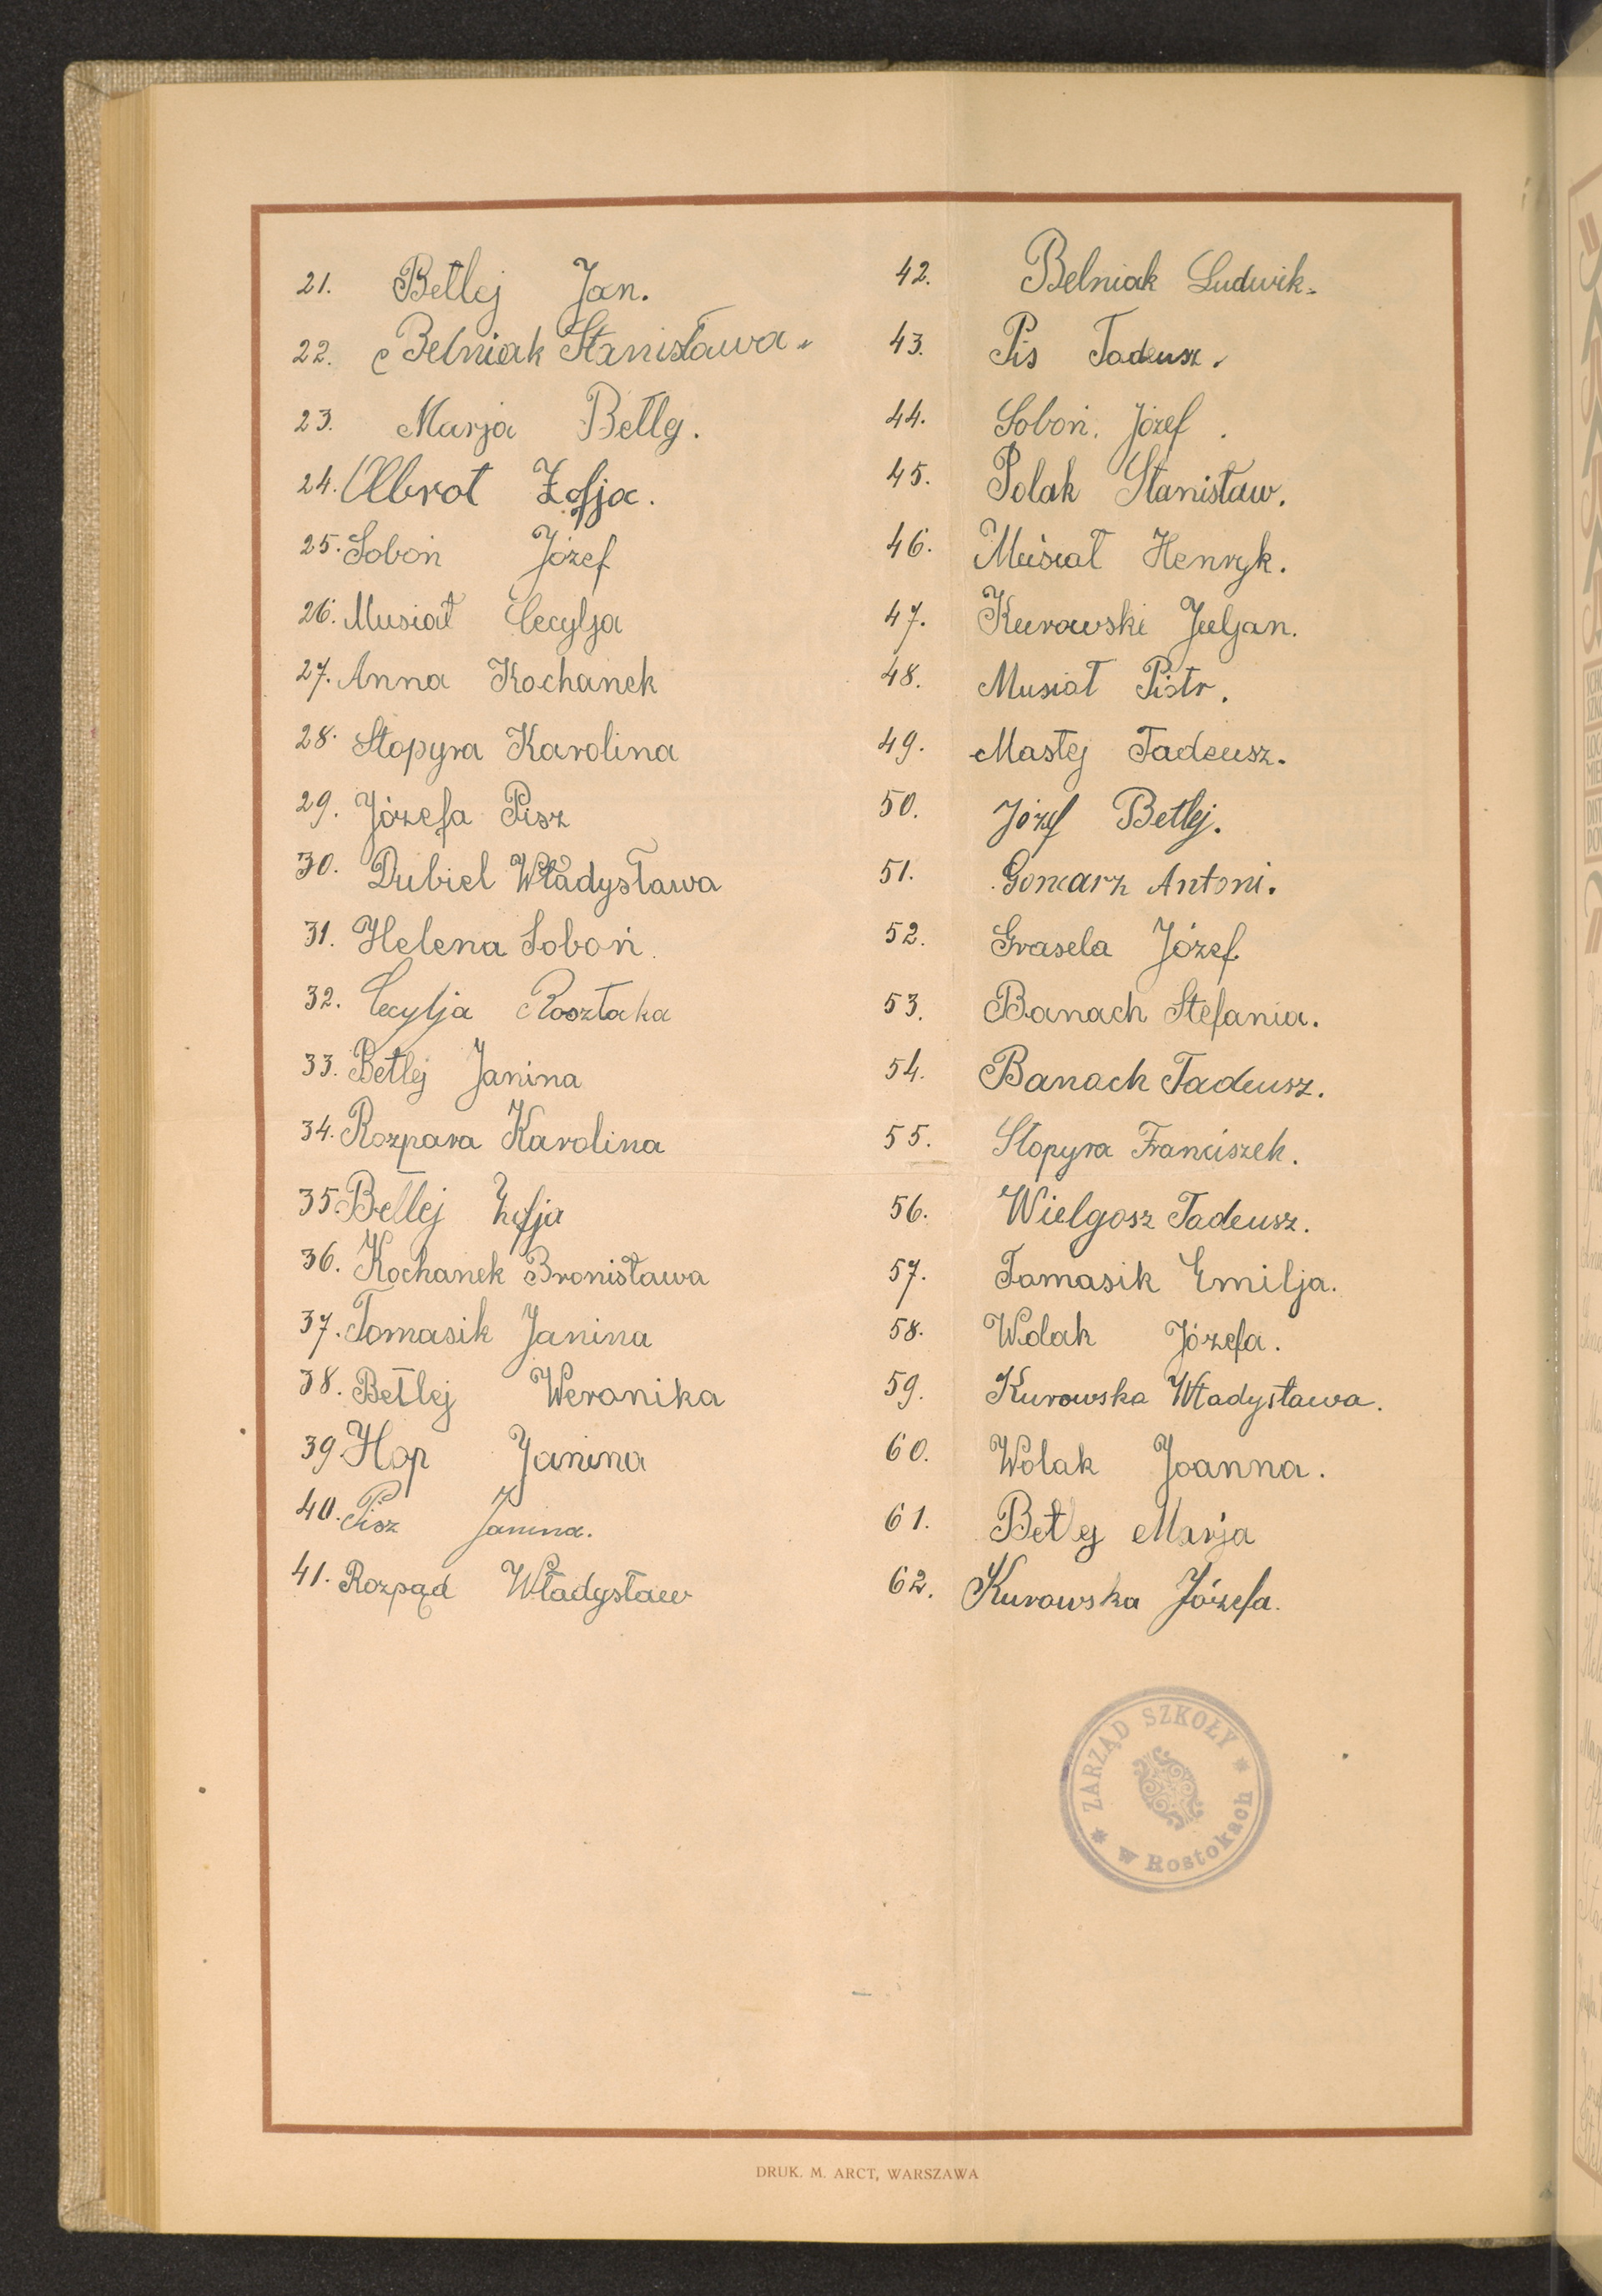 21. Betlej Jan.
22. Belniak Stanisława.
23. Marja Betlej.
24. Olbrot Zofja.
25. Soboń Józef
26. Musiał Cecylja
27. Anna Kochanek
28. Stopyra Karolina
29. Józefa Pisz
30. Dubiel Władysława
31. Helena Soboń.
32. Cecylja Roszłaka
33. Betlej Janina
34. Rozpara Karolina
35. Betlej Zofja
36. Kochanek Bronisława
37. Tomasik Janina
38. Betlej Weronika
39. Hop Janina
40. Pisz Janina.
41. Rozpąd Władysław
42. Belniak Ludwik.
43. Pis Tadeusz.
44. Soboń. Józef.
45. Polak Stanisław.
46. Musiał Henryk.
47. Kurowski Juljan.
48. Musiał Piotr.
49. Mastej Tadeusz.
50. Józef Betlej.
51. Goncarz Antoni.
52. Grasela Józef.
53. Banach Stefania.
54. Banach Tadeusz.
55. Stopyra Franciszek.
56. Wielgosz Tadeusz.
57. Tomasik Emilja.
58. Wolak Józefa.
59. Kurowska Władysława.
60. Wolak Joanna.
61. Betlej Marja
62. Kurowska Józefa.
ZARZĄD SZKOŁY
w Rostokach
DRUK. M. ARCT, WARSZAWA